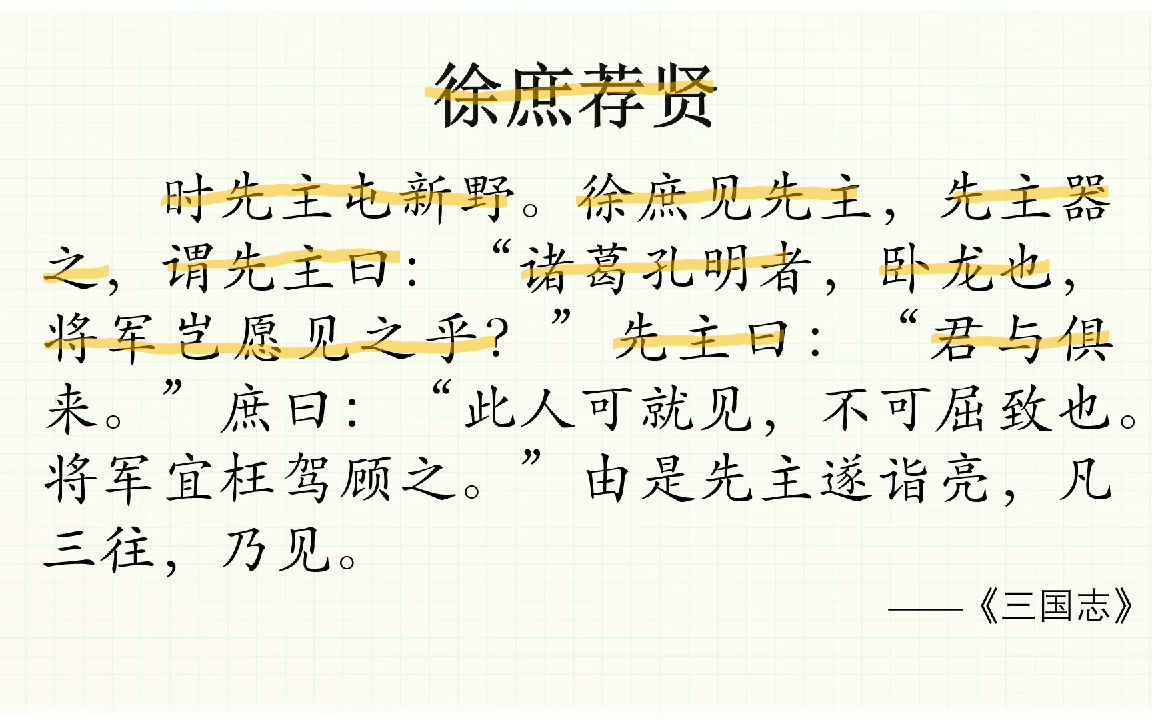 徐庶荐贤
时先主屯新野。徐庶见先主，先主器
之，谓先主曰：“诸葛孔明者，卧龙也，
将军岂愿见之乎？”先主曰：“君与俱
来。”庶曰：“此人可就见，不可屈致也。
将军宜枉驾顾之。”由是先主遂诣亮，凡
三往，乃见。
——《三国志》